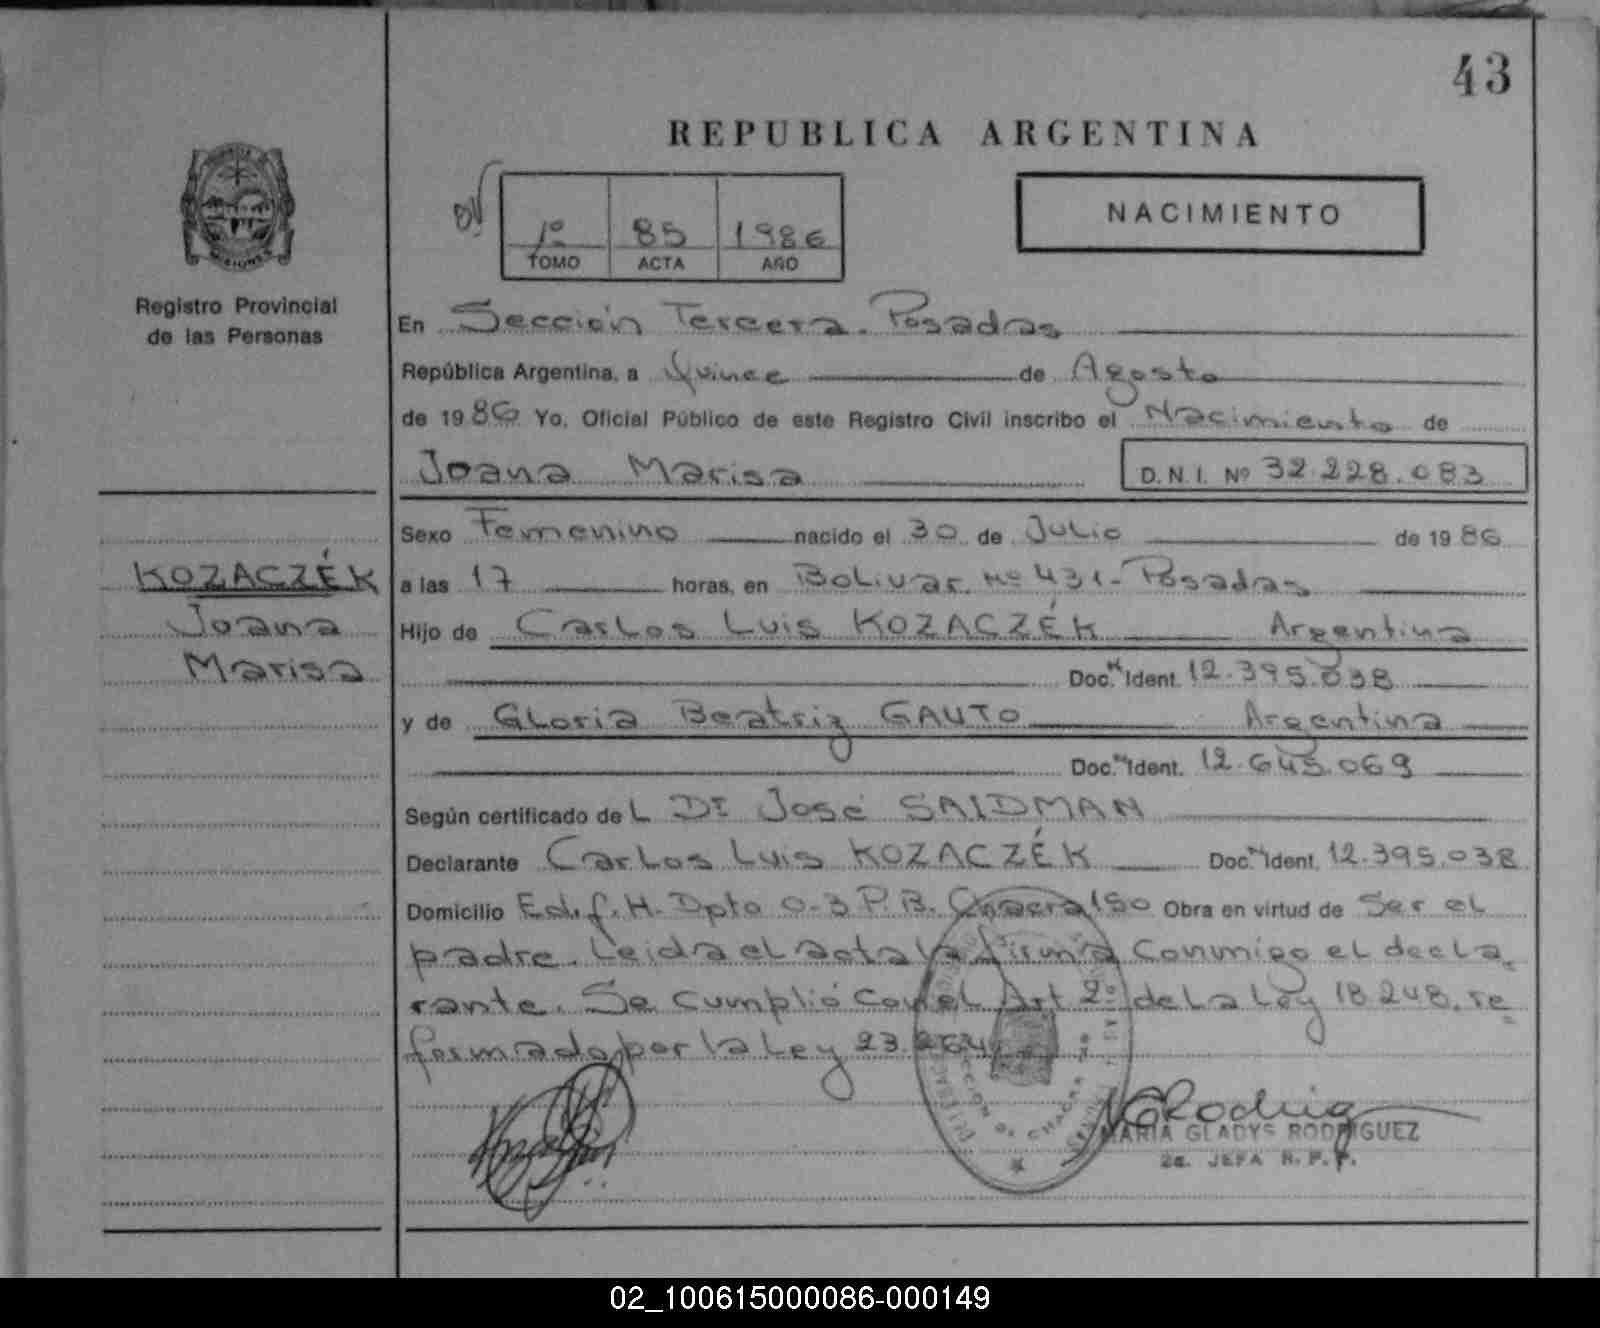 43
REPUBLICA ARGENTINA
1º 85 1986
TOMO ACTA AÑO
NACIMIENTO
Registro Provincial
de las Personas
En Sección Tercera. Posadas
República Argentina, a Quince de Agosto
de 1986 Yo, Oficial Público de este Registro Civil inscribo el Nacimiento de
Joana Marisa D.N.I. Nº 32.228.083
KOZACZÉK
Joana
Marisa
Sexo Femenino nacido el 30 de Julio de 1986
a las 17 horas, en Bolivar. Nº 431- Posadas
Hijo de Carlos Luis KOZACZÉK Argentina
Doc. Ident. 12.395.038
y de Gloria Beatriz GAUTO Argentina
Doc. Ident. 12.645.069
Según certificado del Dr José SAIDMAN
Declarante Carlos Luis KOZACZÉK Doc. Ident. 12.395.038
Domicilio Edif. H. Dpto 0-3 P.B. Chacra 150 Obra en virtud de Ser el
padre. Leida el acta la firma Conmigo el decla
rante. Se cumplió con el Art 2º de la Ley 18.248. re
formado por la Ley 23.264
SECCION 3a CHACRA
MARIA GLADYS RODRIGUEZ
2a. JEFA R. P. P.
02_100615000086-000149